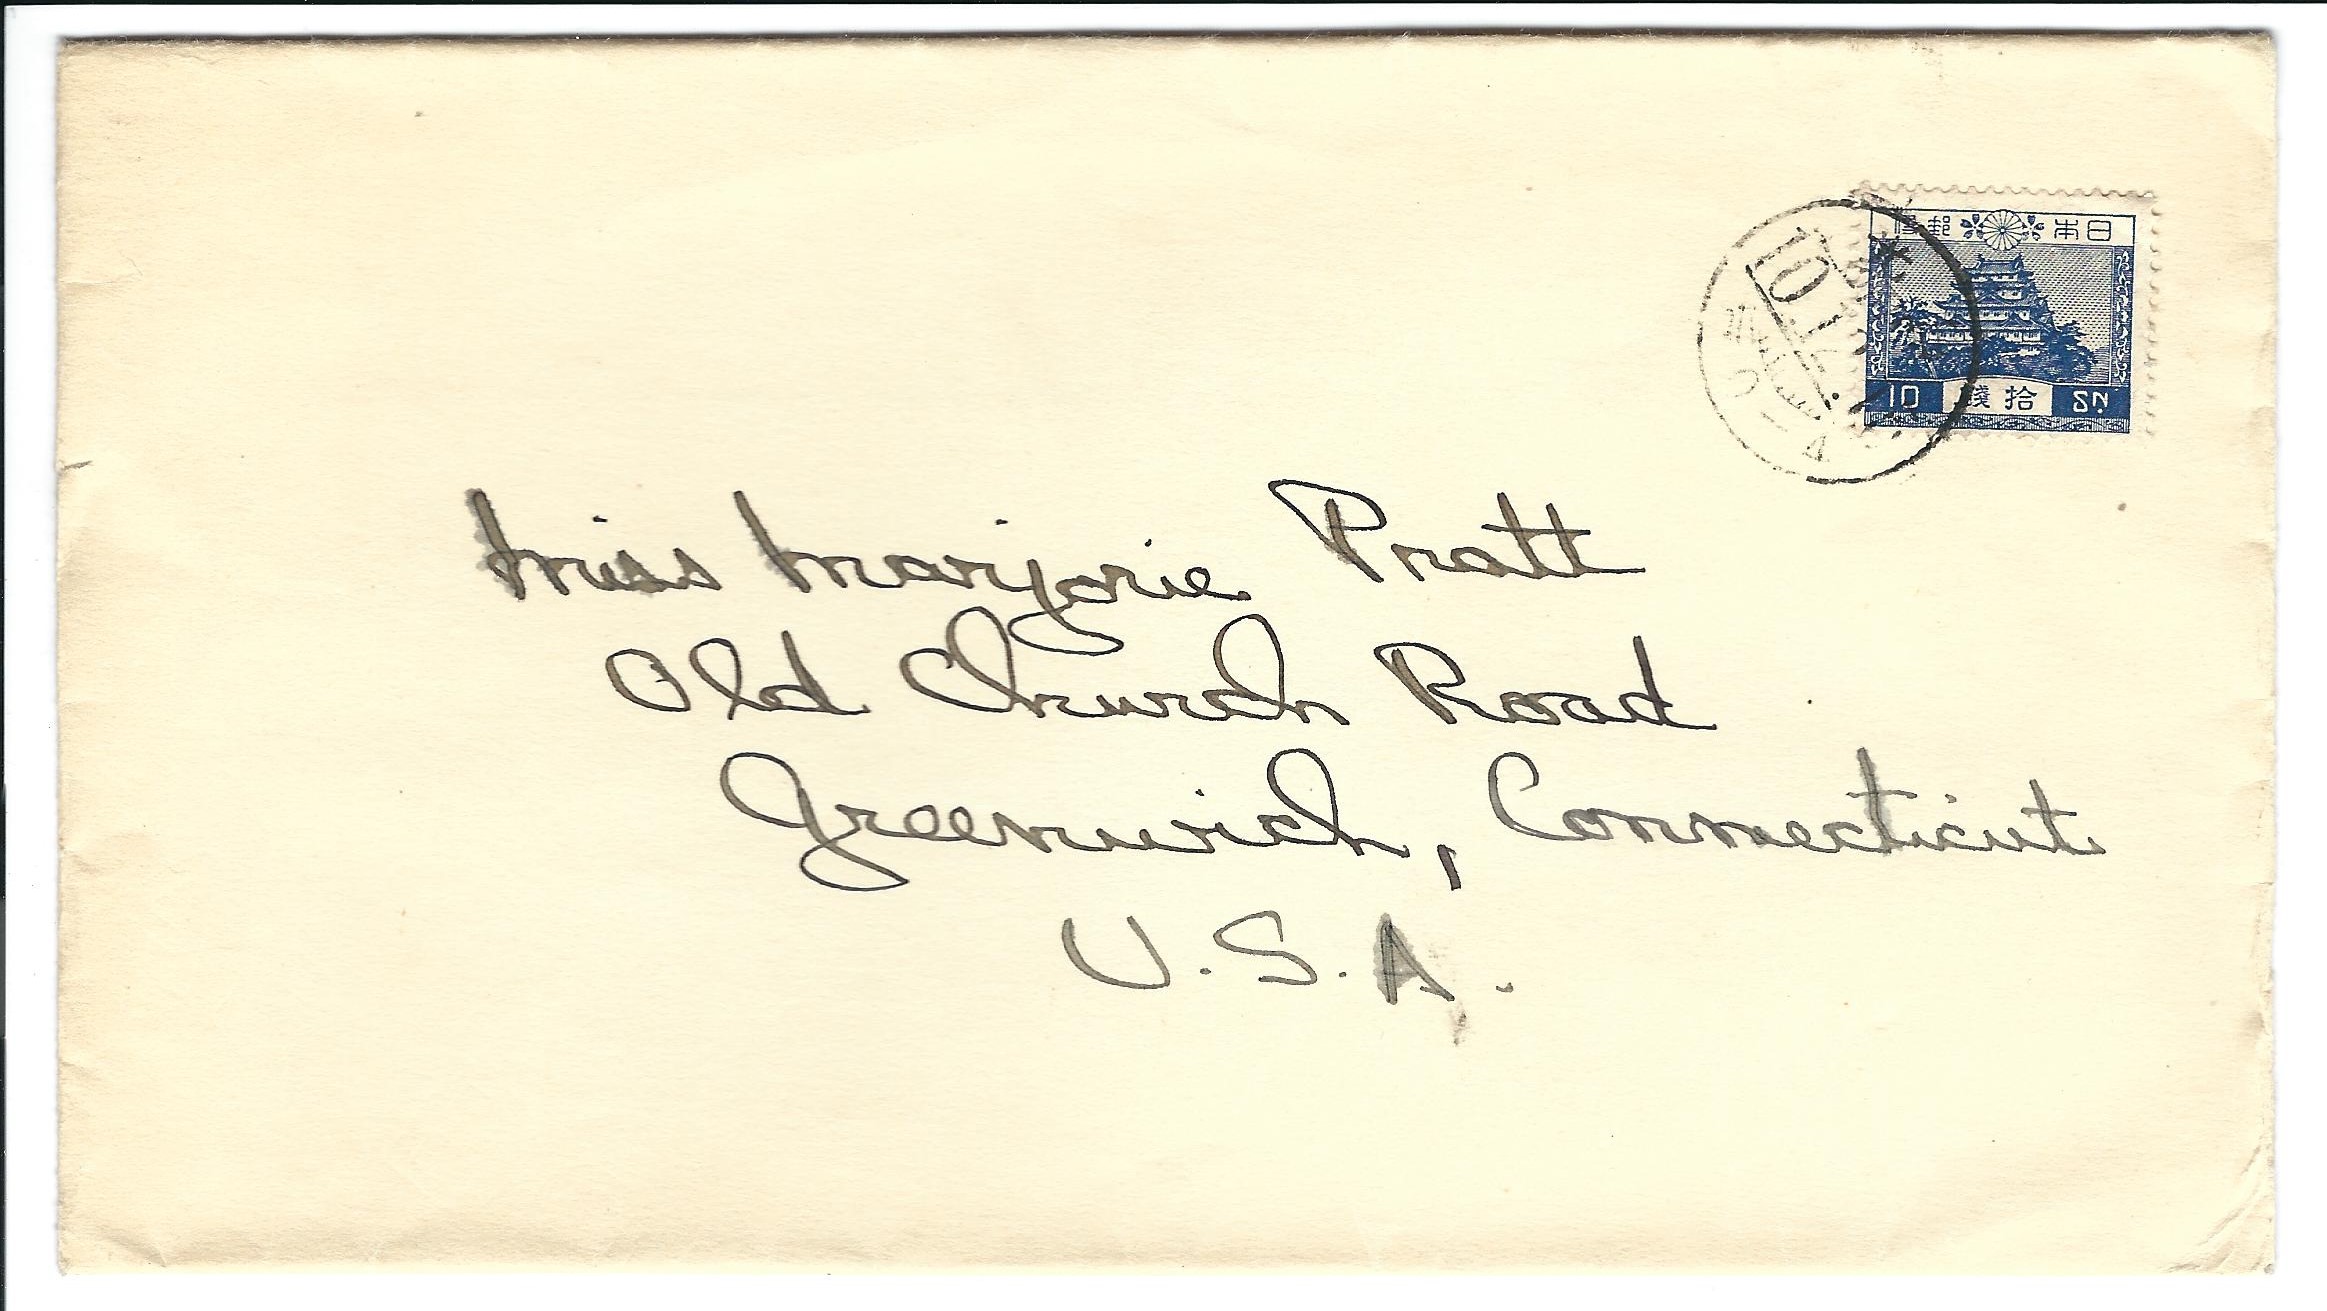 日本郵便
10 拾錢 SN.
Miss Marjorie Pratt
Old Church Road
Greenwich, Connecticut
U.S.A.